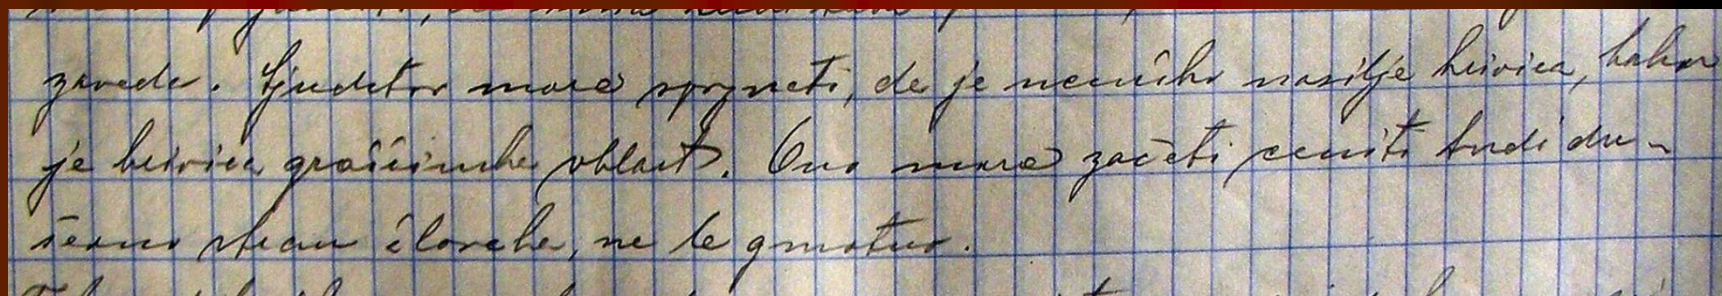 zavede. Ljudstvo mora sprejeti, da je nasilje krivica, kakor
je krivica graščinska oblast. Ono mora začeti ceniti tudi du-
ševno stran človeka, ne le gmotno.